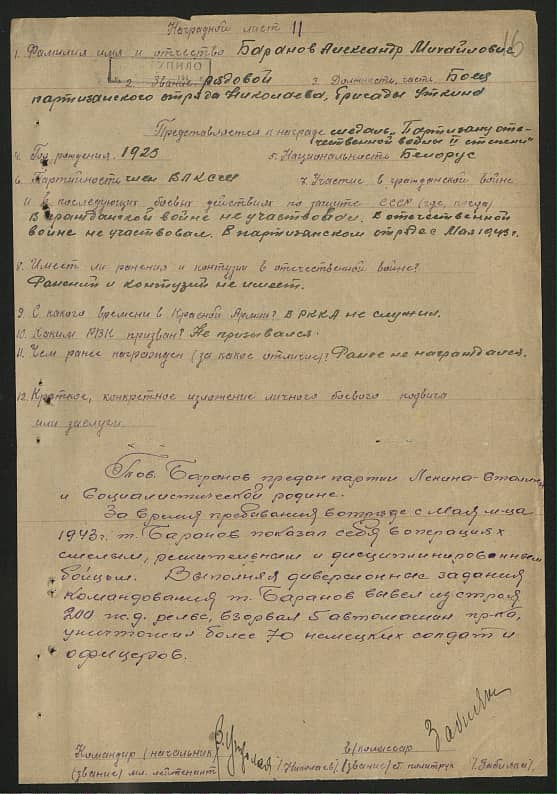 Наградной лист 11
16
1. Фамилия имя и отчество Баранов Александр Михайлович
2. Звание рядовой 3. Должность, часть Боец
партизанского отряда Николаева, бригады Уткина
Представляется к награде медаль "Партизану оте-
чественной войны II степени"
4. Год рождения 1925 5. Национальность Белорус
6. Партийность член ВЛКСМ 7. Участие в гражданской войне
и в последующих боевых действиях по защите СССР (где, когда)
В гражданской войне не участвовал. В отечественной
войне не участвовал. В партизанском отряде с Мая 1943 г.
8. Имеет ли ранения и контузии в отечественной войне?
Ранений и контузий не имеет.
9. С какого времени в Красной Армии? В РККА не служил.
10. Каким РВК призван? Не призывался.
11. Чем ранее награжден (за какое отличие)? Ранее не награждался.
12. Краткое, конкретное изложение личного боевого подвига
или заслуги
Тов. Баранов предан партии Ленина-Сталина
и Социалистической родине.
За время пребывания в отряде с Мая м-ца
1943 г. т. Баранов показал себя в операциях
смелым, решительным и дисциплинированным
бойцом. Выполняя диверсионные задания
командования т. Баранов вывел из строя
200 ж.д. рельс, взорвал 6 автомашин пр-ка,
уничтожил более 70 немецких солдат и
офицеров.
Командир (начальник) в/комиссар
(звание) мл. лейтенант /Николаев/ (звание) ст. политрук